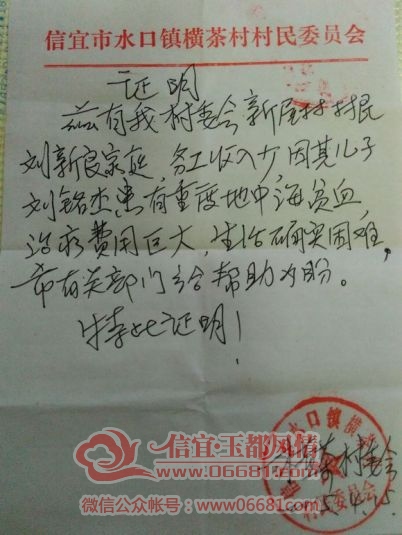 信宜市水口镇横茶村村民委员会
证明
兹有我村委会新屋村村民
刘新良家庭，务工收入少，因其儿子
刘铭杰患有重度地中海贫血，
治疗费用巨大，生活确实困难，
希有关部门给帮助为盼。
特此证明！
水口镇横
村民委员会
横茶村委会
15.4.15
信宜·玉都风信
www.06681.com
微信公众帐号：www06681com